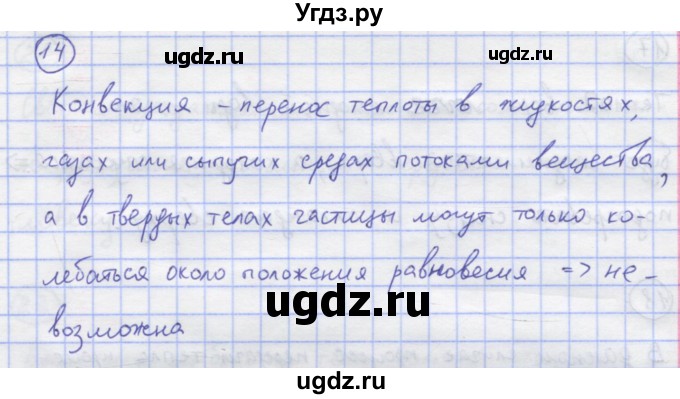 Угдз.ру
14
ugdz.ru ugdz.ru
Конвекция - перенос теплоты в жидкостях,
газах или сыпучих средах потоками вещества,
ugdz.ru ugdz.ru
а в твердых телах частицы могут только ко-
лебаться около положения равновесия => не-
ugdz.ru
возможна
ugdz.ru